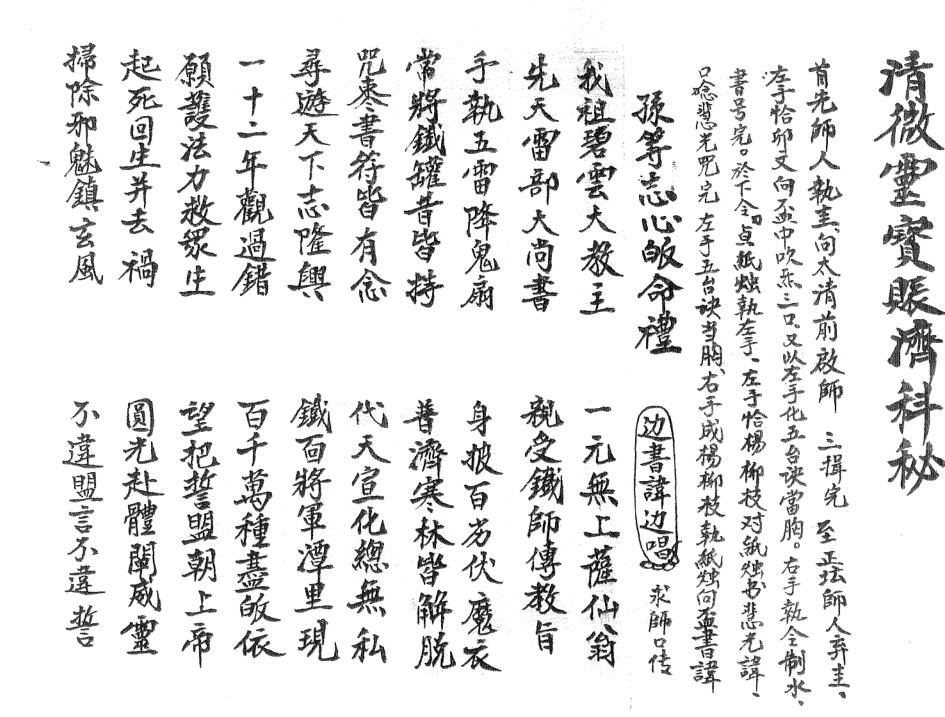 清微靈寶賑濟科秘
首先師人執圭、向太清前啟師 三揖完 至正坛師人弃圭、
左手恰卯文向盂中吹炁三口、又以左手化五台诀當胸。右手執令制水、
書号完。於下令、点紙烛執左手、左手恰楊柳枝对紙烛书悲光諱、
口念悲光咒完 左手五台诀当胸、右手成楊柳枝執紙烛向盂書諱
孫等志心皈命禮 边書諱边唱 求師口传
我祖碧雲大教主 一元無上薩仙翁
先天雷部大尚書 親受鐵師傳教旨
手執五雷降鬼扇 身披百衲伏魔衣
常將鐵罐昔皆持 普濟寒林皆解脱
咒棗書符皆有念 代天宣化總無私
尋遊天下志隆興 鐵面將軍潭里現
一十二年觀過錯 百千萬種盡皈依
願護法力救眾生 望把誓盟朝上帝
起死回生并去禍 圓光赴體闡威靈
掃除邪魅鎮玄風 不違盟言不違誓